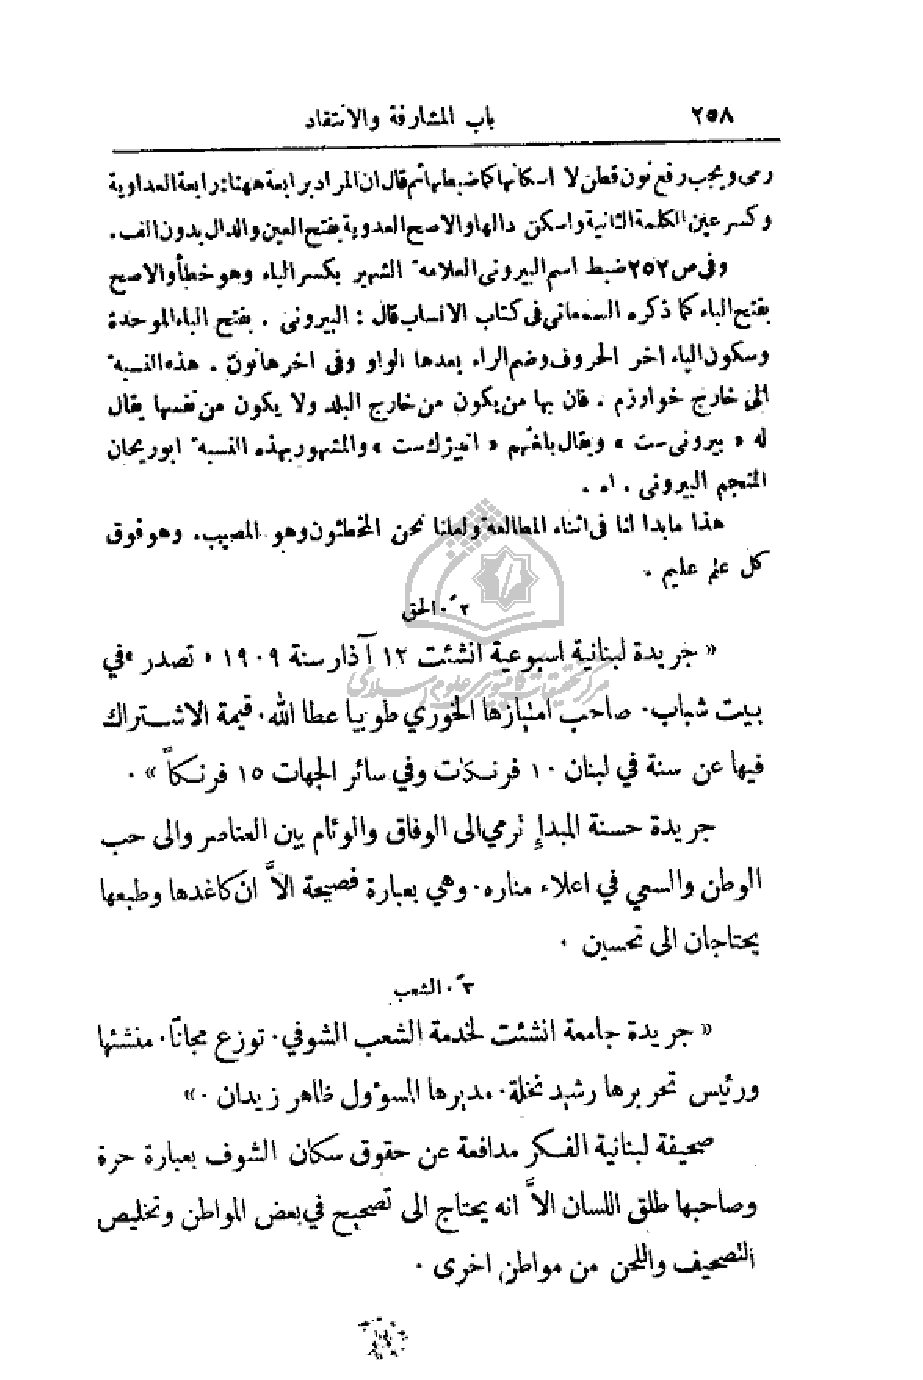 ٢٥٨ باب المشارفة والانتقاد
رمى ويجب رفع نون قطن لا اسكانها كما ضبطها ثم قال ان المراد برابعة ههنا: رابعة العداوية
وكسر عين الكلمة الثانية واسكن دالها والاصح العدوية بفتح العين والدال بدون الف.
وفى ص ٢٥٢ ضبط اسم البيرونى العلامة الشهير بكسر الباء وهو خطأ والاصح
بفتح الباء كما ذكره السمعانى فى كتاب الانساب قال : البيرونى . بفتح الباء الموحدة
وسكون الياء اخر الحروف وضم الراء بعدها الواو وفى اخرها نون . هذه النسبة
الى خارج خوارزم . فان بها من يكون من خارج البلد ولا يكون من نفسها يقال
له « بيرونى ست » ويقال بلغتهم « انبيژك ست » والمشهور بهذه النسبة ابو ريحان
المنجم البيرونى . اه .
هذا ما بدا لنا فى اثناء المطالعة ولعلنا نحن المخطئون وهو المصيب. وهو فوق
كل علم عليم .
٢ً. الحق
« جريدة لبنانية اسبوعية انشئت ١٢ آذار سنة ١٩٠٩ « تصدر »في
بيت شباب. صاحب امتيازها الخوري طوبيا عطا الله. قيمة الاشتراك
فيها عن سنة في لبنان ١٠ فرنكات وفي سائر الجهات ١٥ فرنكاً » .
جريدة حسنة المبدإ ترمي الى الوفاق والوئام بين العناصر والى حب
الوطن والسعي في اعلاء مناره. وهي بعبارة فصيحة الاَّ ان كاغدها وطبعها
يحتاجان الى تحسين .
٣ً. الشعب
« جريدة جامعة انشئت لخدمة الشعب الشوفي. توزع مجانًا. منشئها
ورئيس تحريرها رشيد نخلة. مديرها المسؤول ظاهر زيدان . »
صحيفة لبنانية الفكر مدافعة عن حقوق سكان الشوف بعبارة حرة
وصاحبها طلق اللسان الاَّ انه يحتاج الى تصحيح في بعض المواطن وتخليص
التصحيف واللحن من مواطن اخرى .
مرکز تحقیقات کامپیوتری علوم اسلامی